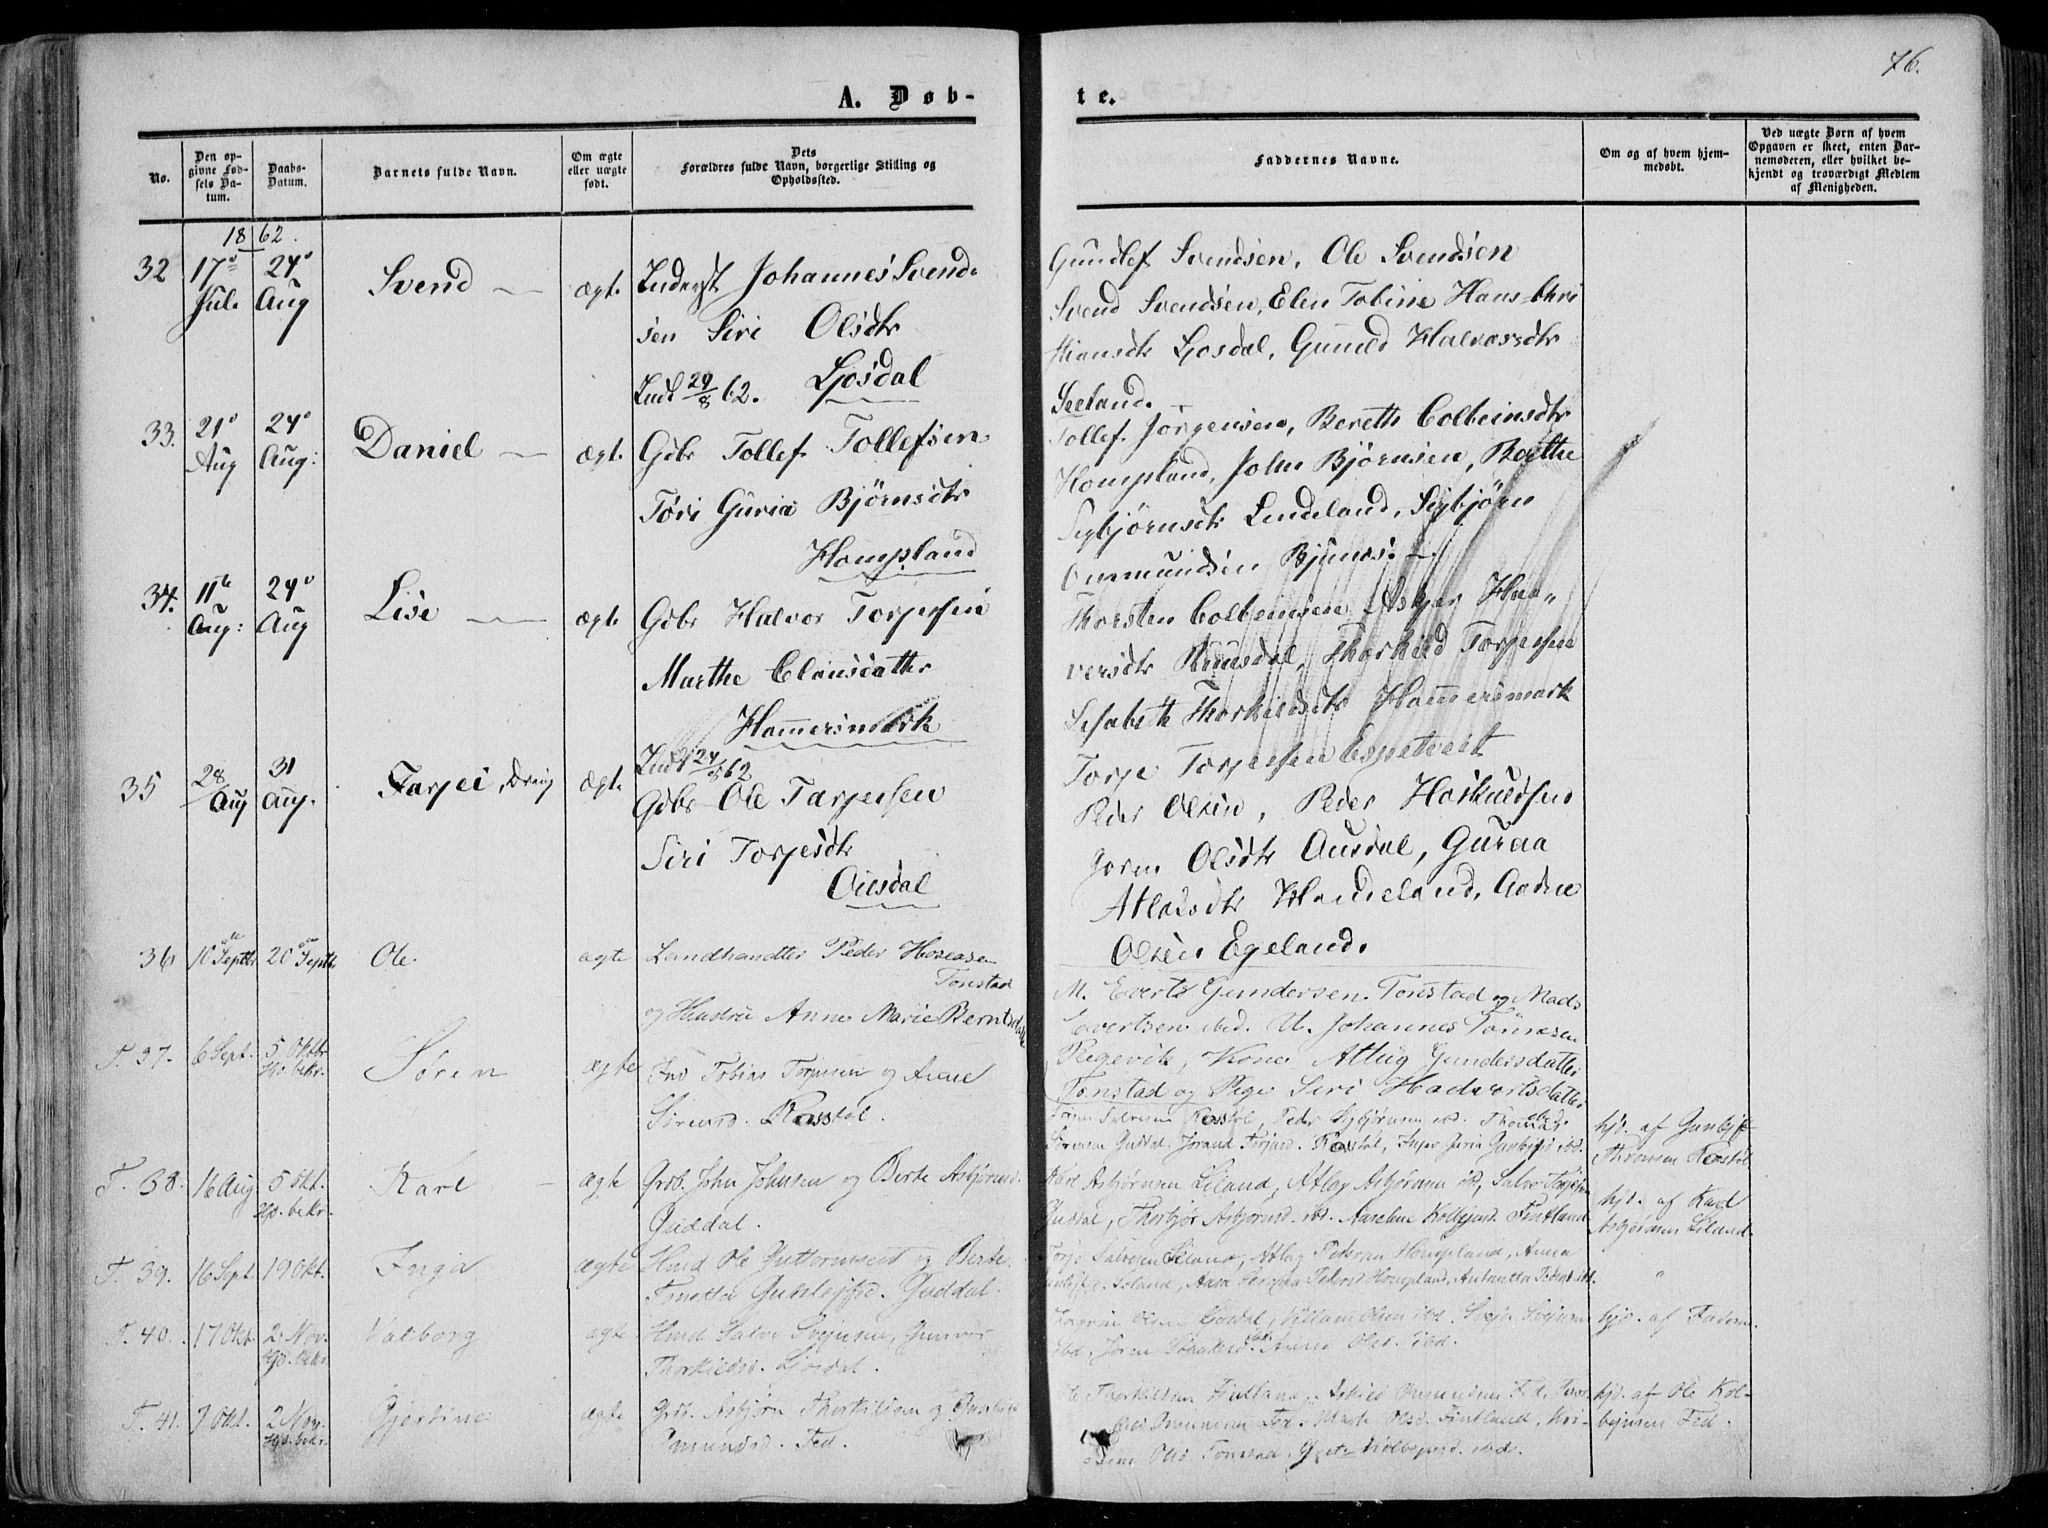 76.
A. Døb-
te.
No.
Den op-
givne Fød-
sels Da-
tum.
Daabs-
Datum.
Barnets fulde Navn.
Om ægte
eller uægte
født.
Dets
Forældres fulde Navn, borgerlige Stilling og
Opholdssted.
Faddernes Navne.
Om og af hvem hjem-
medøbt.
Ved uægte Børn af hvem
Opgaven er skeet, enten Bar-
nemoderen, eller hvilket be-
kjendt og troværdigt Medlem
af Menigheden.
1862.
32 17 Jul. 24 Aug Svend ægt. Inderst Johannes Svend-
sen Siri Olsdtr
Ljosdal
Gundlef Svendsen, Ole Svendsen
Svend Svendsen, Elen Tobine Hans-Chri
stiansdtr Ljosdal, Gunild Halvorsdtr
Seeland.
33. 21 Aug 24 Aug: Daniel ægt. Gdbr Tollef Tollefsen
Tori Guria Bjørnsdtr
Hompland
Tollef Jörgensen, Bereth Colbeinsdtr
Hompland, John Bjørnsen, Berthe
Sigbjørnsdtr Lindeland, Sigbjørn
34. 11te Aug: 24 Aug Lise ægt. Gdbr Halvor Torjesen
Marthe Clausdatter
Hamersmark
Thorsten Colbeinsen
versdtr Thorkild Torjesen
Lisabeth Thorkildsdtr Hammersmark
Torje Torjesen Espetveit
35 28 Aug 31 Aug. Tarjei, Dreng ægt. Gdbr Ole Tarjeisen
Siri Torjesdtr
Ousdal
Peder Olsen, Peder Hoskuldsen
Joren Olsdtr Ousdal, Guroa
Atlaksdtr Handeland, Aaden
Olsen Egeland.
36 10de Septbr 20de Septbr Ole ægte Landhandler Peder Hoseasen
Tonstad
og Hustru Anne Marie Berntsdatter
M. Everts Gundersen Tonstad og Mads
Evertsen ibd. U. Johannes Tönnesen
Regevik, Kone Atlug Gundersdatter
Tonstad og Pige Siri Hadvortsdatter
T. 37. 6 Sept. 5 Oktbr Hj. bekr. Søren ægte Ind Tobias Torjesen og Anne
Sörensd. Rosstöl.
Rosstöl, Peder Sigbjørnsen ibd. Thomas
Sørensen Guddal, Jorand Torjesd. Rosstøl, Inger Guria ibd.
hjd. af
Thronsen Rosstöl
T. 38. 16 Aug. 5 Okt. Hjd. bekr. Karl ægte Grdb. John Johnsen og Berte Asbjørnsd.
Guddal.
Karl Asbjørnsen Eiland, Atlag Asbjørnsen ibd, Salve Torjesen
Guddal, Thorbjør Asbjørnsd. ibd. Kolbejnsd. Fintland
hjd. af Karl
Asbjørnsen Eiland.
T. 39. 16 Sept. 19 Okt. Inga ægte Hmd Ole Guttormsen og Berte
Guddal.
Torje Salvesen Eiland, Atlag Pedersen Hompland, Anna
"
T. 40. 17 Okt. 2 Nov. Hjd. bekr. Valborg ægte Hmd Salve Svejnsen, Gunvor
Thorkildsd. Ljosdal.
Olsen Ljosdal, Villum Olsen ibd. Svejnsen
ibd, Anna Olsd. ibd.
hjd. af Faderen
T. 41. 7 Okt. 2 Nov. Hjd. bekr. Gjertine ægte Grdb. Asbjørn Thorkildsen og
Omundsd. Fed.
Ole Thorkildsen Fintland, Askild Omundsen Fed,
Omundsen Fed. Marte Olsd. Fintland,
Olsd Tonstad, Grete Kolbejnsd. ibd.
hjd. af Ole Kol-
bejnsen Fed.